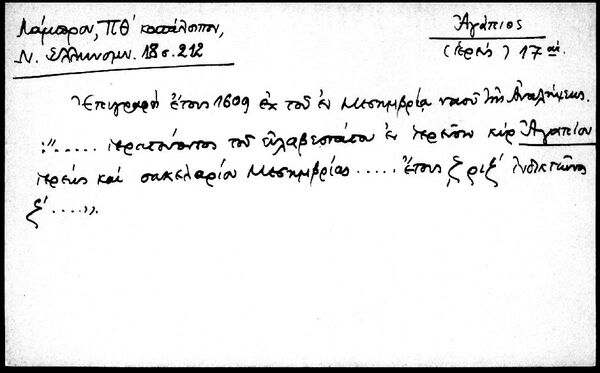 Λάμπρου, ΠΘ' κατάλοιπον,
Ν. Ελληνομν. 18 σ. 212
Ἀγάπιος
(ἱερεύς) 17 αἰ.
Ἐπιγραφή ἔτους 1609 ἐκ τοῦ ἐν Μεσημβρίᾳ ναοῦ τῆς Ἀναλήψεως.
:"..... ἱερατεύοντος τοῦ εὐλαβεστάτου ἐν ἱερεῦσιν κύρ Ἀγαπίου
ἱερέως καί σακελαρίου Μεσημβρίας ..... ἔτους ζριζ' Ἰνδικτιῶνος
ζ' ....».